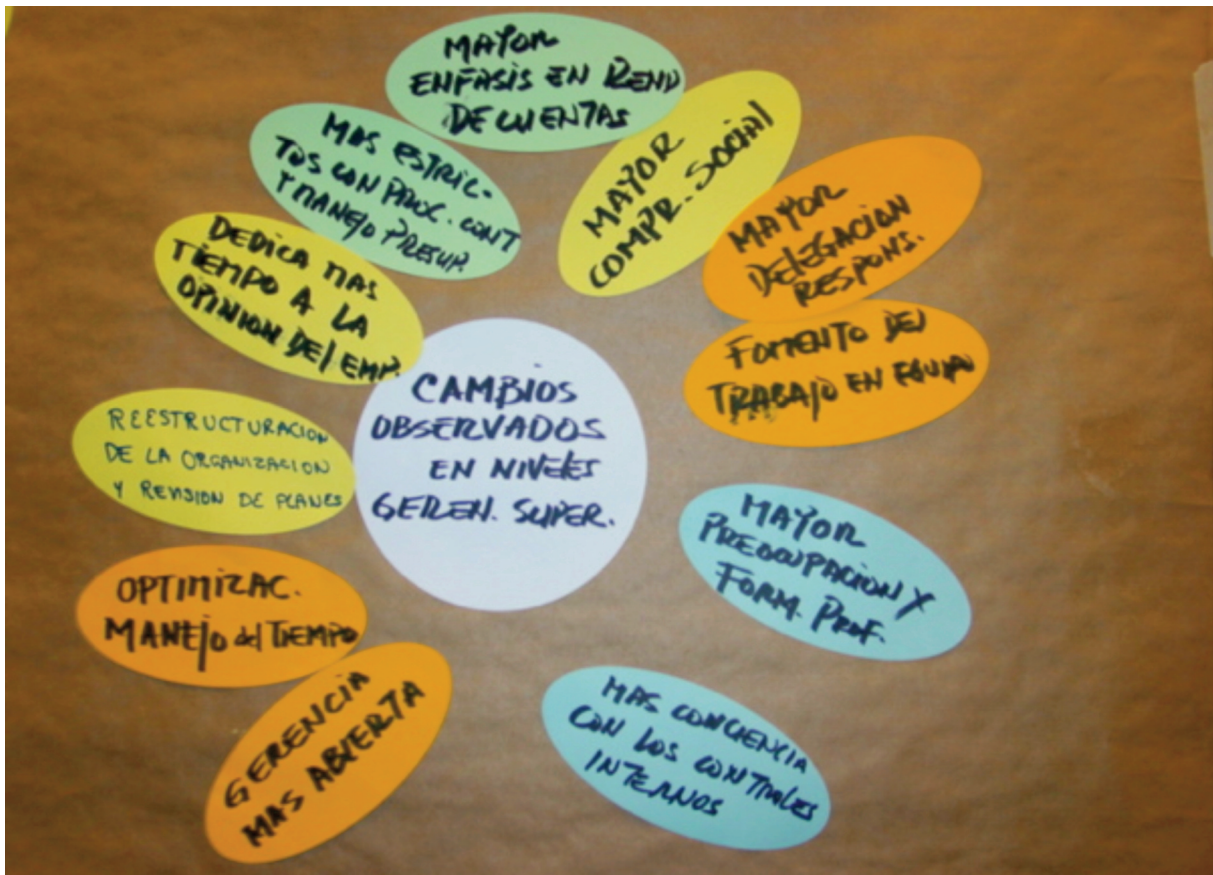 MAYOR
ENFASIS EN REND
DE CUENTAS
MAS ESTRIC-
TOS CON PROC. CONT
Y MANEJO PRESUP.
MAYOR
COMPR. SOCIAL
MAYOR
DELEGACION
RESPONS.
DEDICA MAS
TIEMPO A LA
OPINION DEL EMP.
FOMENTO DEL
TRABAJO EN EQUIPO
CAMBIOS
OBSERVADOS
EN NIVELES
GEREN. SUPER.
REESTRUCTURACION
DE LA ORGANIZACION
Y REVISION DE PLANES
MAYOR
PREOCUPACION X
FORM. PROF.
OPTIMIZAC.
MANEJO del TIEMPO
GERENCIA
MAS ABIERTA
MAS CONCIENCIA
CON LOS CONTROLES
INTERNOS